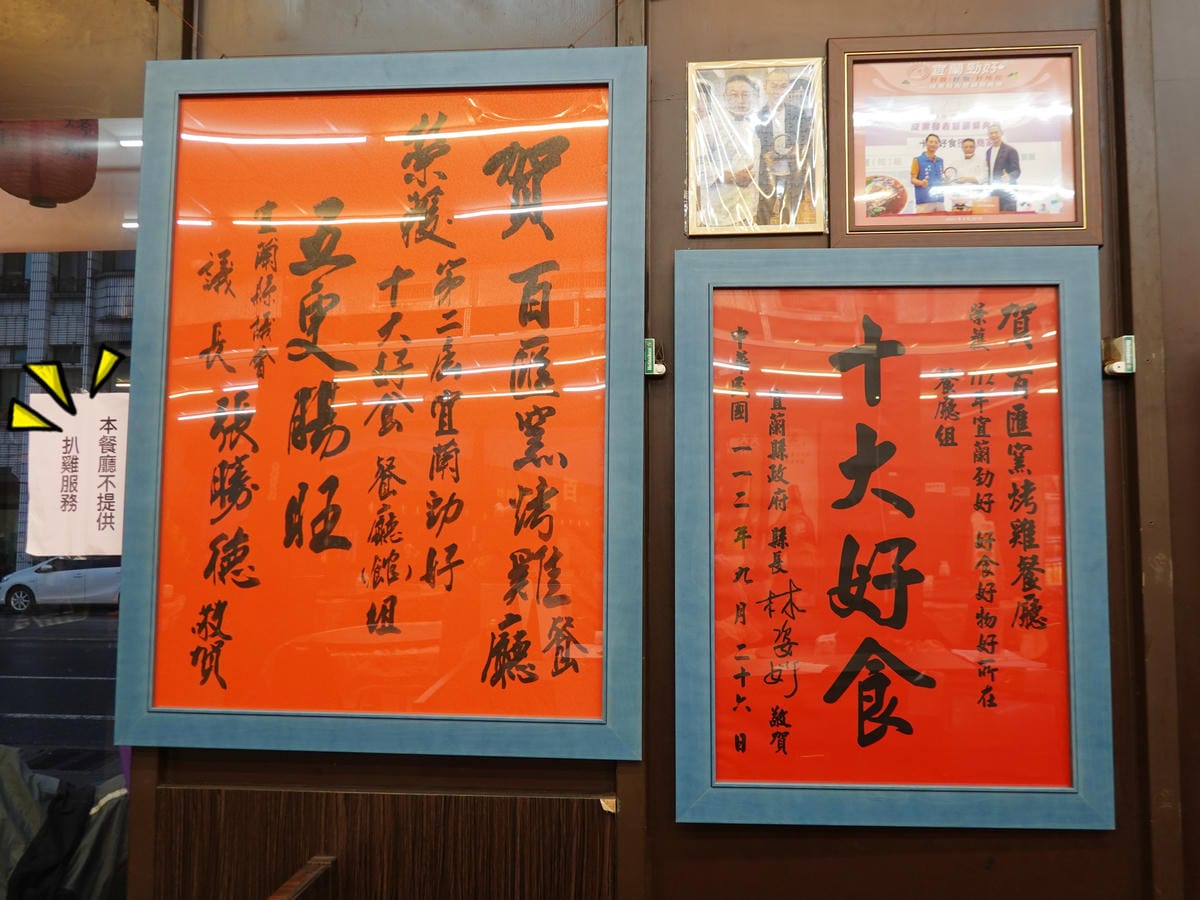 賀 百匯窯烤雞餐廳
榮獲 第二屆宜蘭勁好
十大好食 餐廳(館)組
五更腸旺
宜蘭縣議會
議長 張勝德 敬賀
宜蘭勁好
賀 百匯窯烤雞餐廳
榮獲 112年宜蘭勁好 好食好物好所在
餐廳組
十大好食
宜蘭縣政府 縣長 林姿妙 敬賀
中華民國一一二年九月二十六日
本餐廳不提供
扒雞服務